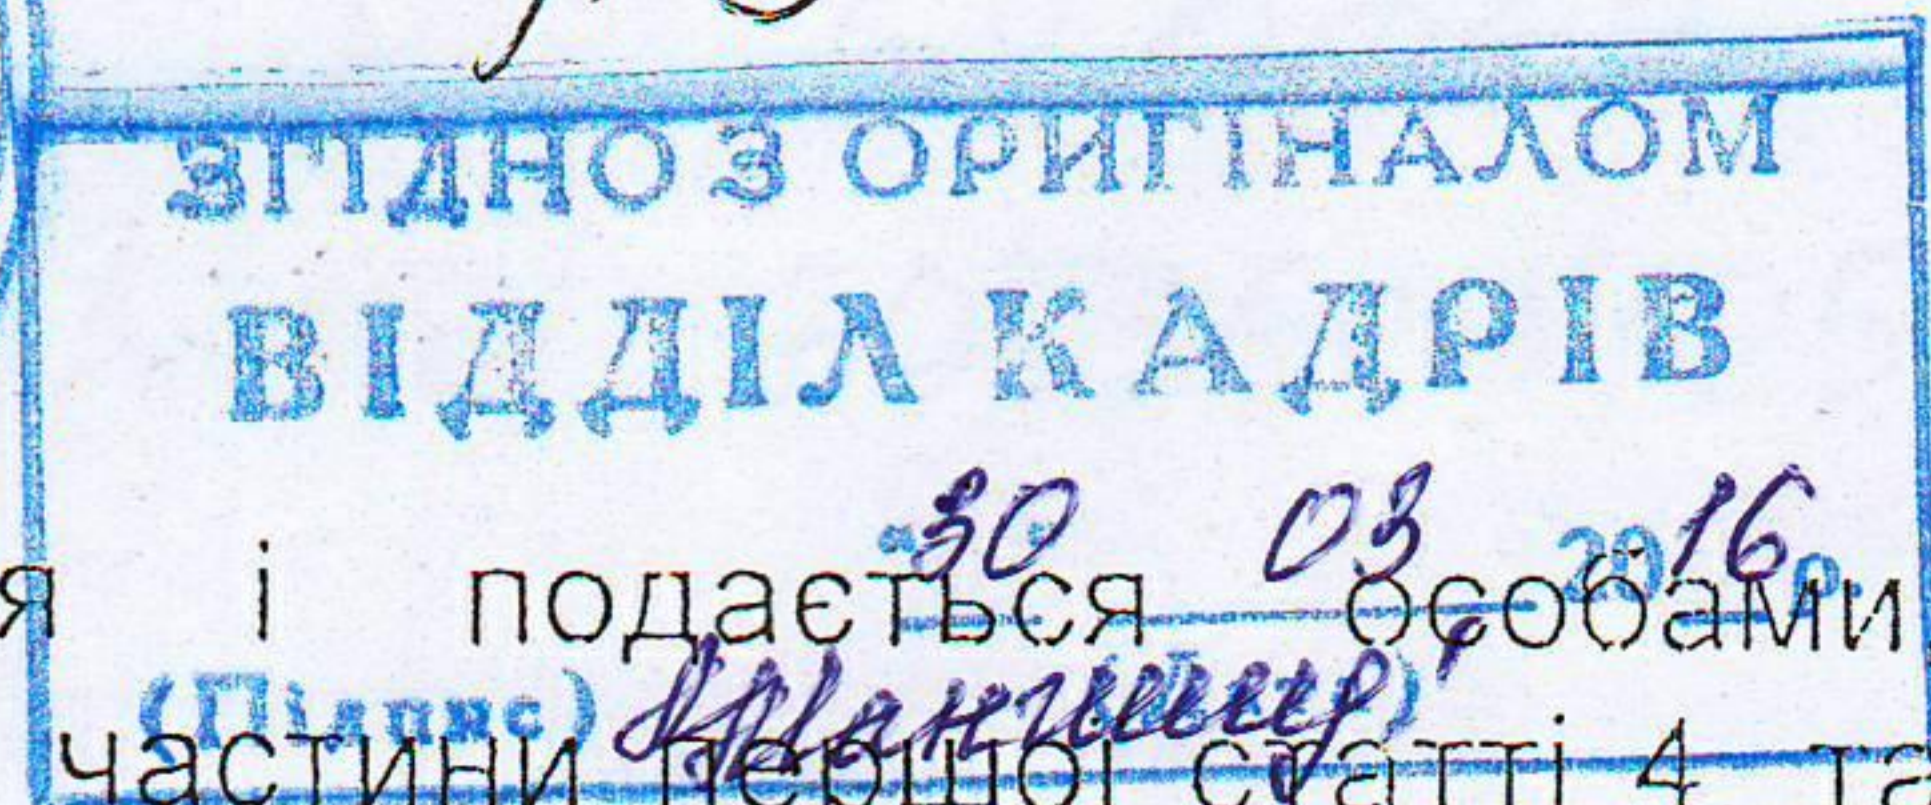 ЗГІДНО З ОРИГІНАЛОМ
ВІДДІЛ КАДРІВ
"30" 03 2016 р.
я і подається особами
(Підпис)
частини першої статті 4 та